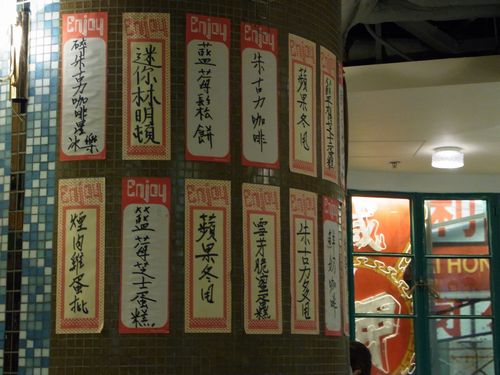 Enjoy
碎朱古力咖啡星冰樂
Enjoy
迷你林明頓
Enjoy
藍莓鬆餅
Enjoy
朱古力咖啡
Enjoy
蘋果冬甩
芝士蛋糕
Enjoy
煙肉雞蛋批
Enjoy
藍莓芝士蛋糕
Enjoy
蘋果冬甩
Enjoy
雲芽脆蜜蛋糕
Enjoy
朱古力多甩
Enjoy
鮮奶咖啡
威
利
THON